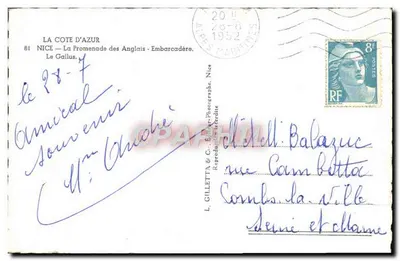 LA COTE D'AZUR
81 NICE — La Promenade des Anglais - Embarcadère.
Le Gallus.
20
1952
ALPES MARITIMES
8F
POSTES
RF
le 28-7
Amical
souvenir
Mme André
L. GILLETTA & C. Photographe, Nice
Reproduction interdite
Balazuc
rue Gambetta
Combs-la-Ville
Seine et Marne